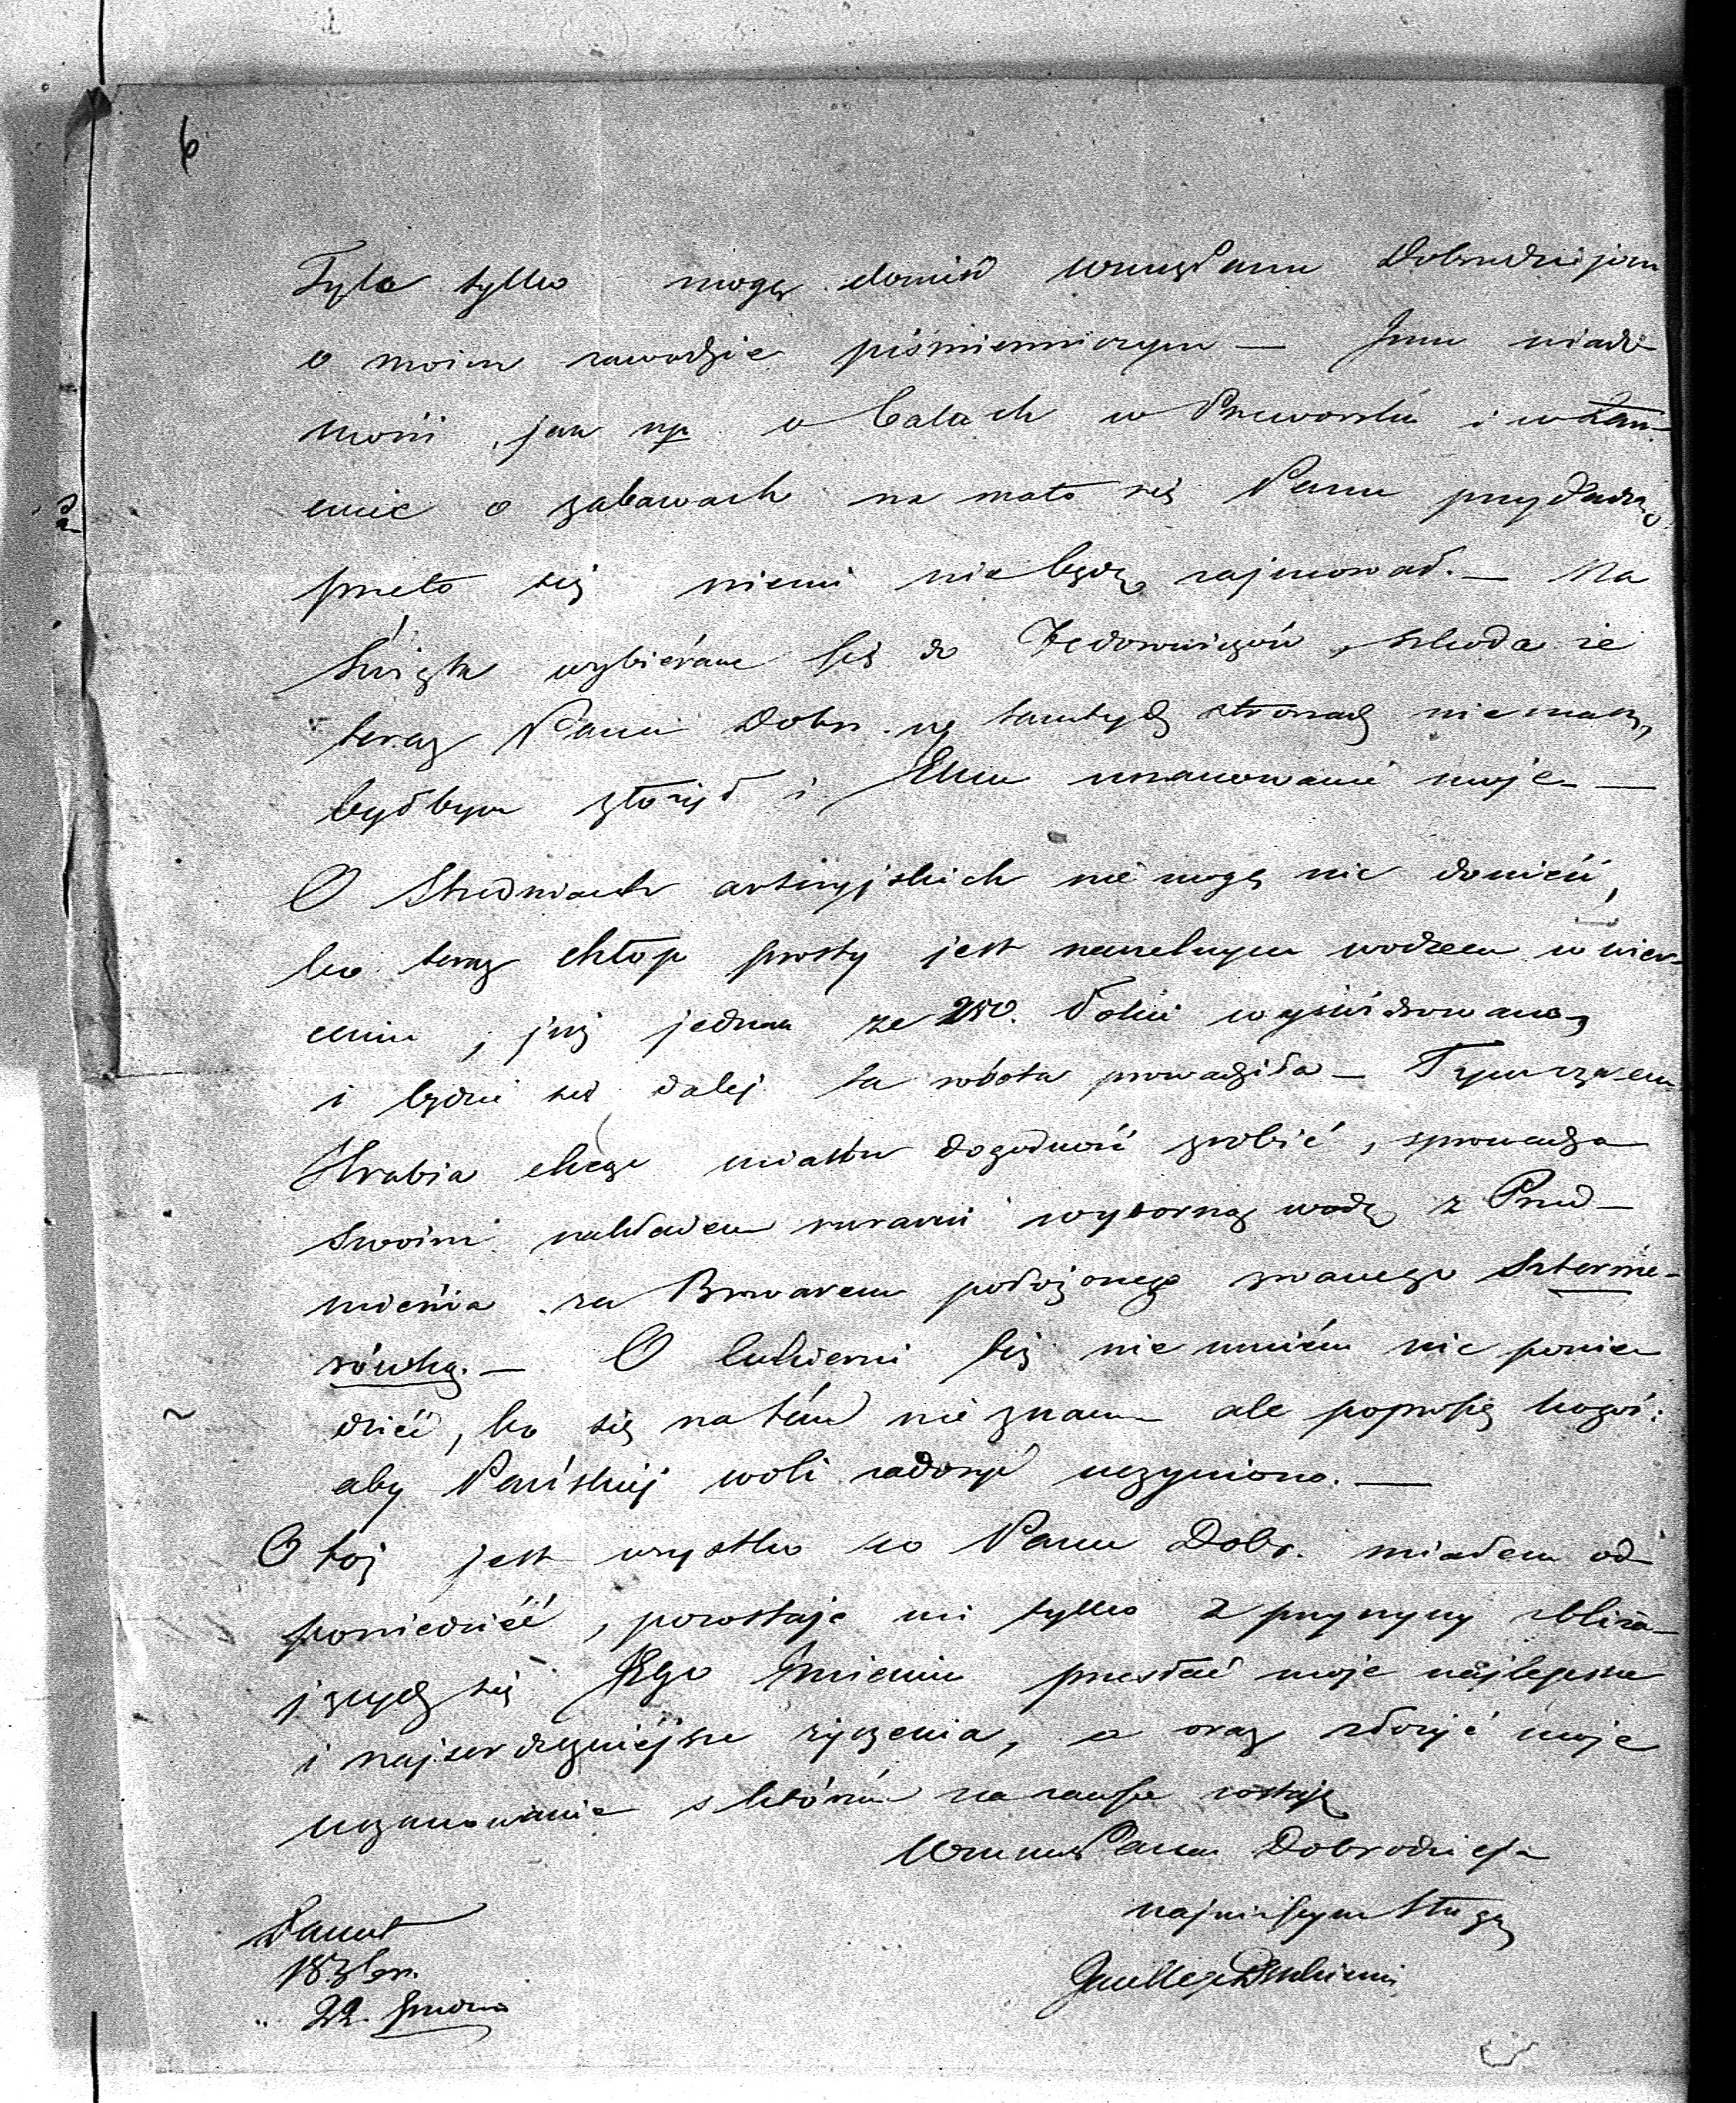 6
Tyle tylko mogę donieść WmuPanu Dobrodziejowi
o moim zawodzie piśmienniczym — Inne wiado-
mości, jak np o balach w Przeworsku i w Łań-
cucie o zabawach na mało się Panu przydadzą,
przeto się niemi nie będę zajmował. — Na
święta wybiéram się do , szkoda że
teraz Pani Dobr. w tamtych stronach niemasz,
byłbym złożył i Jemu uszanowanie moje —
O studniach artezyjskich nie mogę nic donieść,
bo teraz chłop prosty jest naczelnym wodzem w wier-
ceniu, już jednak ze 280. stóp wyświdrowano,
i będzie się dalej ta robota prowadziła — Tymczasem
Hrabia chcąc miastu dogodność zrobić, sprowadza
swoim nakładem rurami wyborną wodę z Przed-
mieścia za Browarem położonego zwanego
rówką. — O cukierni się nie umiém nic powie-
dzieć, bo się na tém nie znam ale poproszę kogoś:
aby Pańskiej woli zadosyć uczyniono. —
Otoż jest wszystko co Panu Dobr. miałem od-
powiedzieć, pozostaje mi tylko z przyczyny zbliża-
jących się Jego Imienin przesłać moje najlepsze
i najserdeczniejsze życzenia, a oraz złożyć moje
uszanowanie z którém na zawsze zostaję
WmmPana Dobrodzieja
najniższym sługą
Łańcut
22. Grudnia